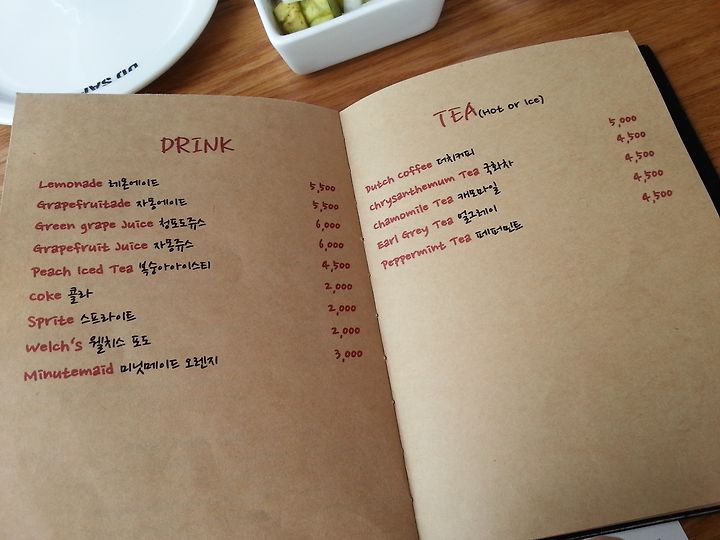 DRINK
Lemonade 레몬에이드 5,500
Grapefruitade 자몽에이드 5,500
Green grape Juice 청포도쥬스 6,000
Grapefruit Juice 자몽쥬스 6,000
Peach Iced Tea 복숭아아이스티 4,500
Coke 콜라 2,000
Sprite 스프라이트 2,000
Welch's 웰치스 포도 2,000
Minutemaid 미닛메이드 오렌지 3,000
TEA (Hot or Ice)
Dutch Coffee 더치커피 5,000
Chrysanthemum Tea 국화차 4,500
Chamomile Tea 캐모마일 4,500
Earl Grey Tea 얼그레이 4,500
Peppermint Tea 페퍼민트 4,500